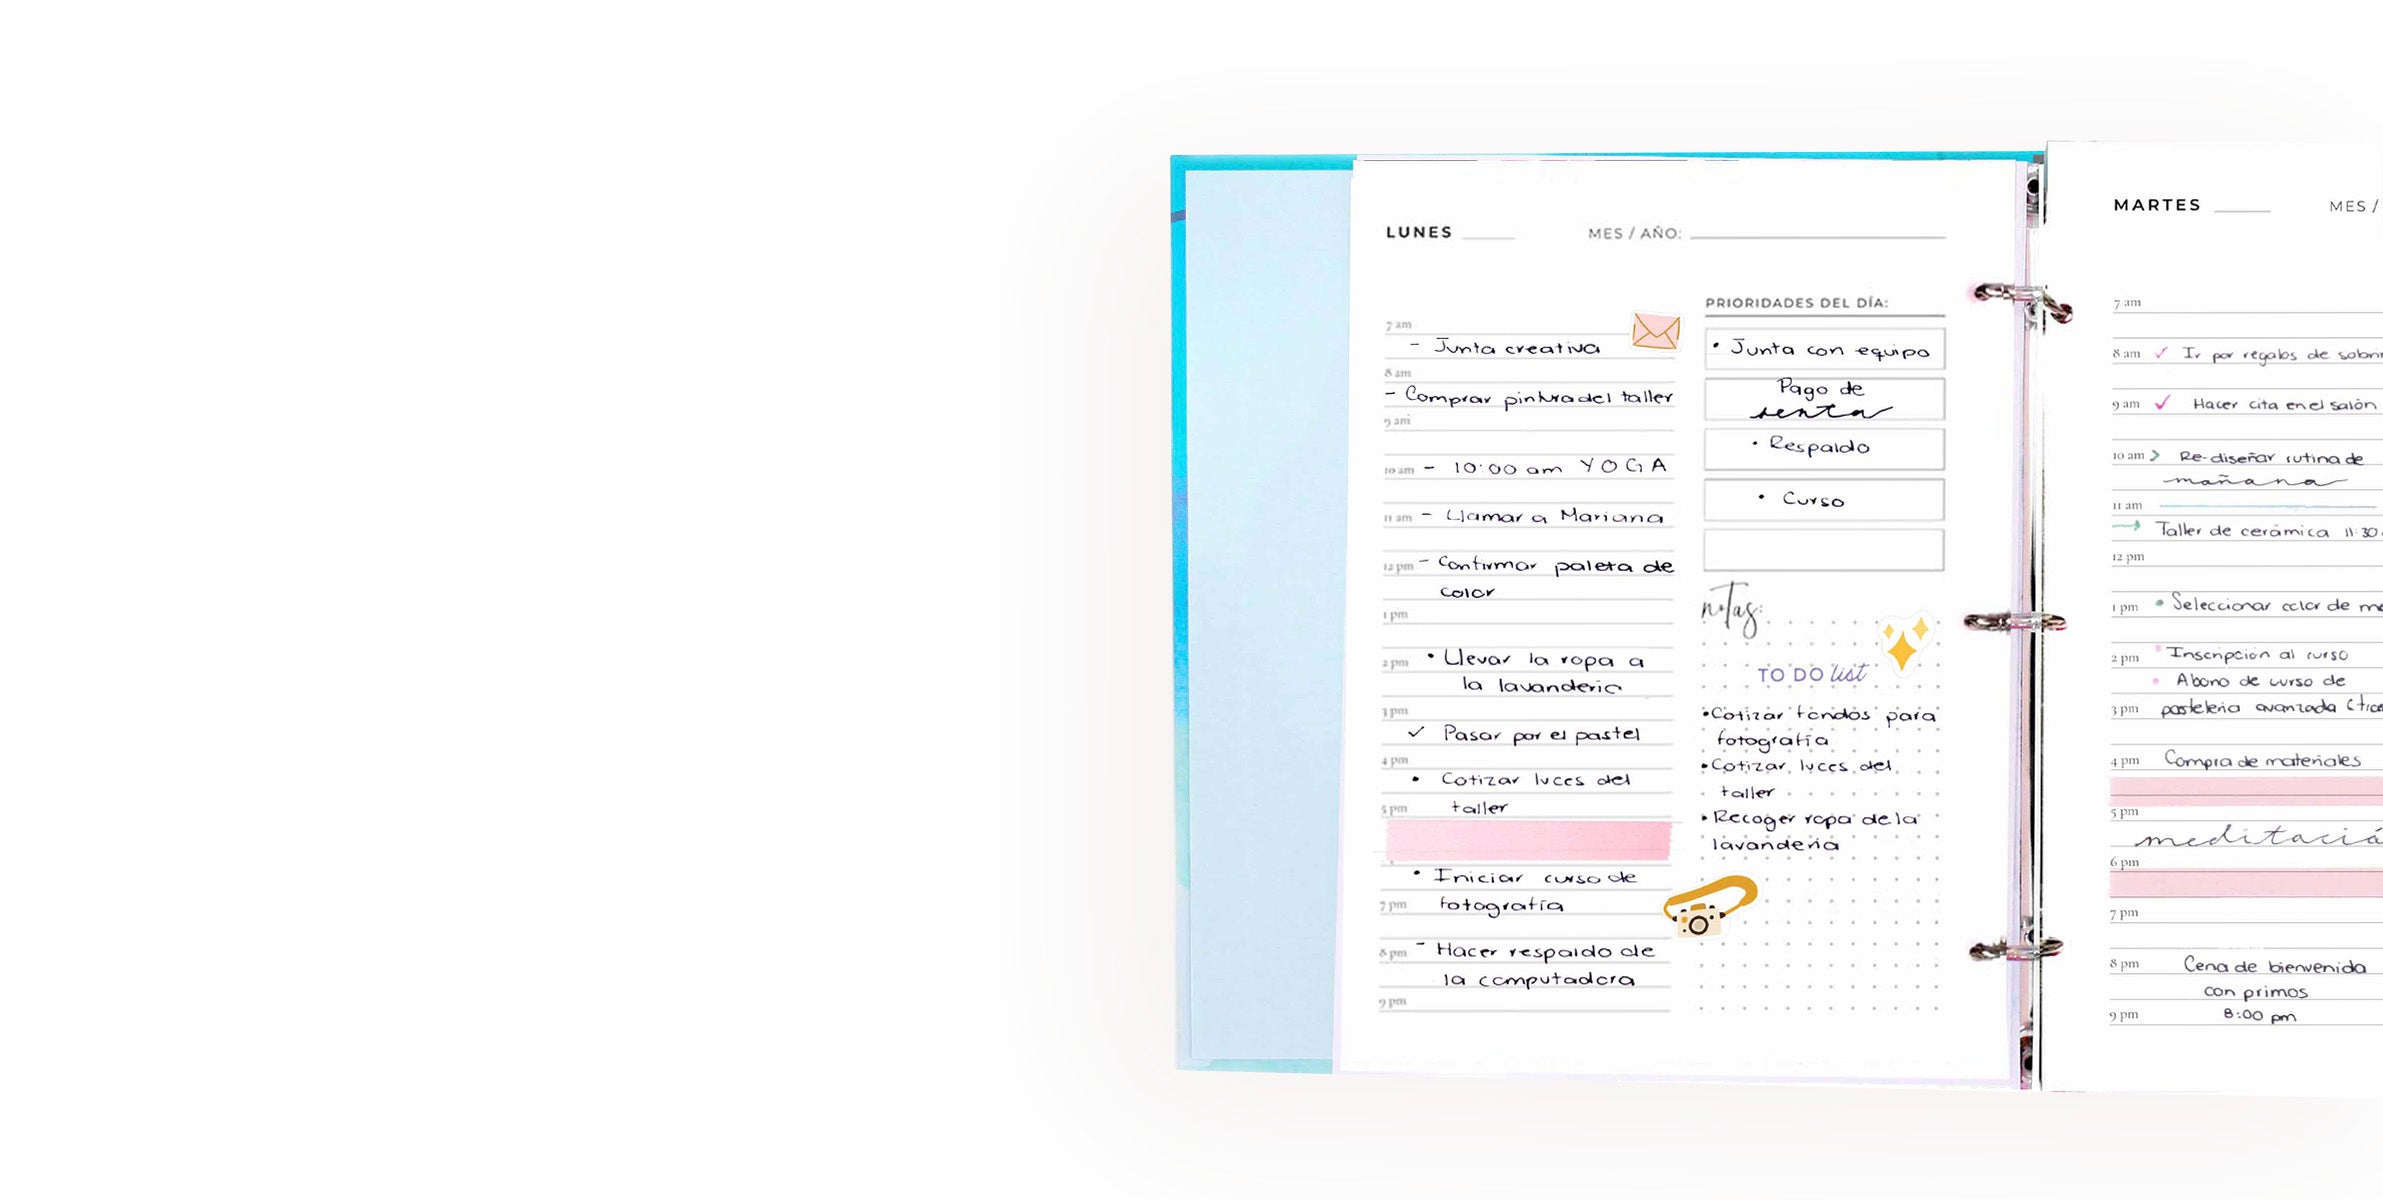 LUNES
MES / AÑO:
7 am
- Junta creativa
8 am
- Comprar pintura del taller
9 am
10 am - 10:00 am YOGA
11 am - Llamar a Mariana
12 pm - Confirmar paleta de
color
1 pm
2 pm • Llevar la ropa a
la lavanderia
3 pm
✓ Pasar por el pastel
4 pm
• Cotizar luces del
5 pm taller
• Iniciar curso de
7 pm fotografía
8 pm - Hacer respaldo de
la computadora
9 pm
PRIORIDADES DEL DÍA:
• Junta con equipo
Pago de
renta
• Respaldo
• Curso
notas:
TO DO list
• Cotizar fondos para
fotografía
• Cotizar luces del
taller
• Recoger ropa de la
lavanderia
MARTES
MES /
7 am
8 am ✓ Ir por regalos de
9 am ✓ Hacer cita en el salón
10 am > Re-diseñar rutina de
mañana
11 am
→ Taller de cerámica 11:30
12 pm
1 pm • Seleccionar color de
2 pm • Inscripción al curso
• Abono de curso de
3 pm pastelería avanzada
4 pm Compra de materiales
5 pm
meditació
6 pm
7 pm
8 pm Cena de bienvenida
con primos
9 pm 8:00 pm